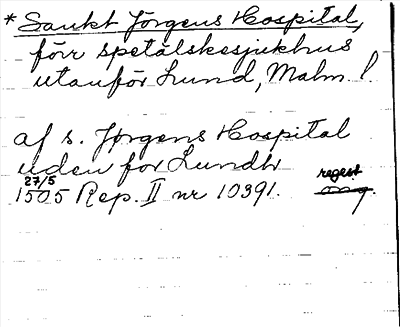 * Sankt Jörgens Hospital,
förr spetälskesjukhus
utanför Lund, Malm. l.
af s. Jørgens Hospital
uden for Lundh
regest
27/5
1505 Rep. II nr 10391. orig.